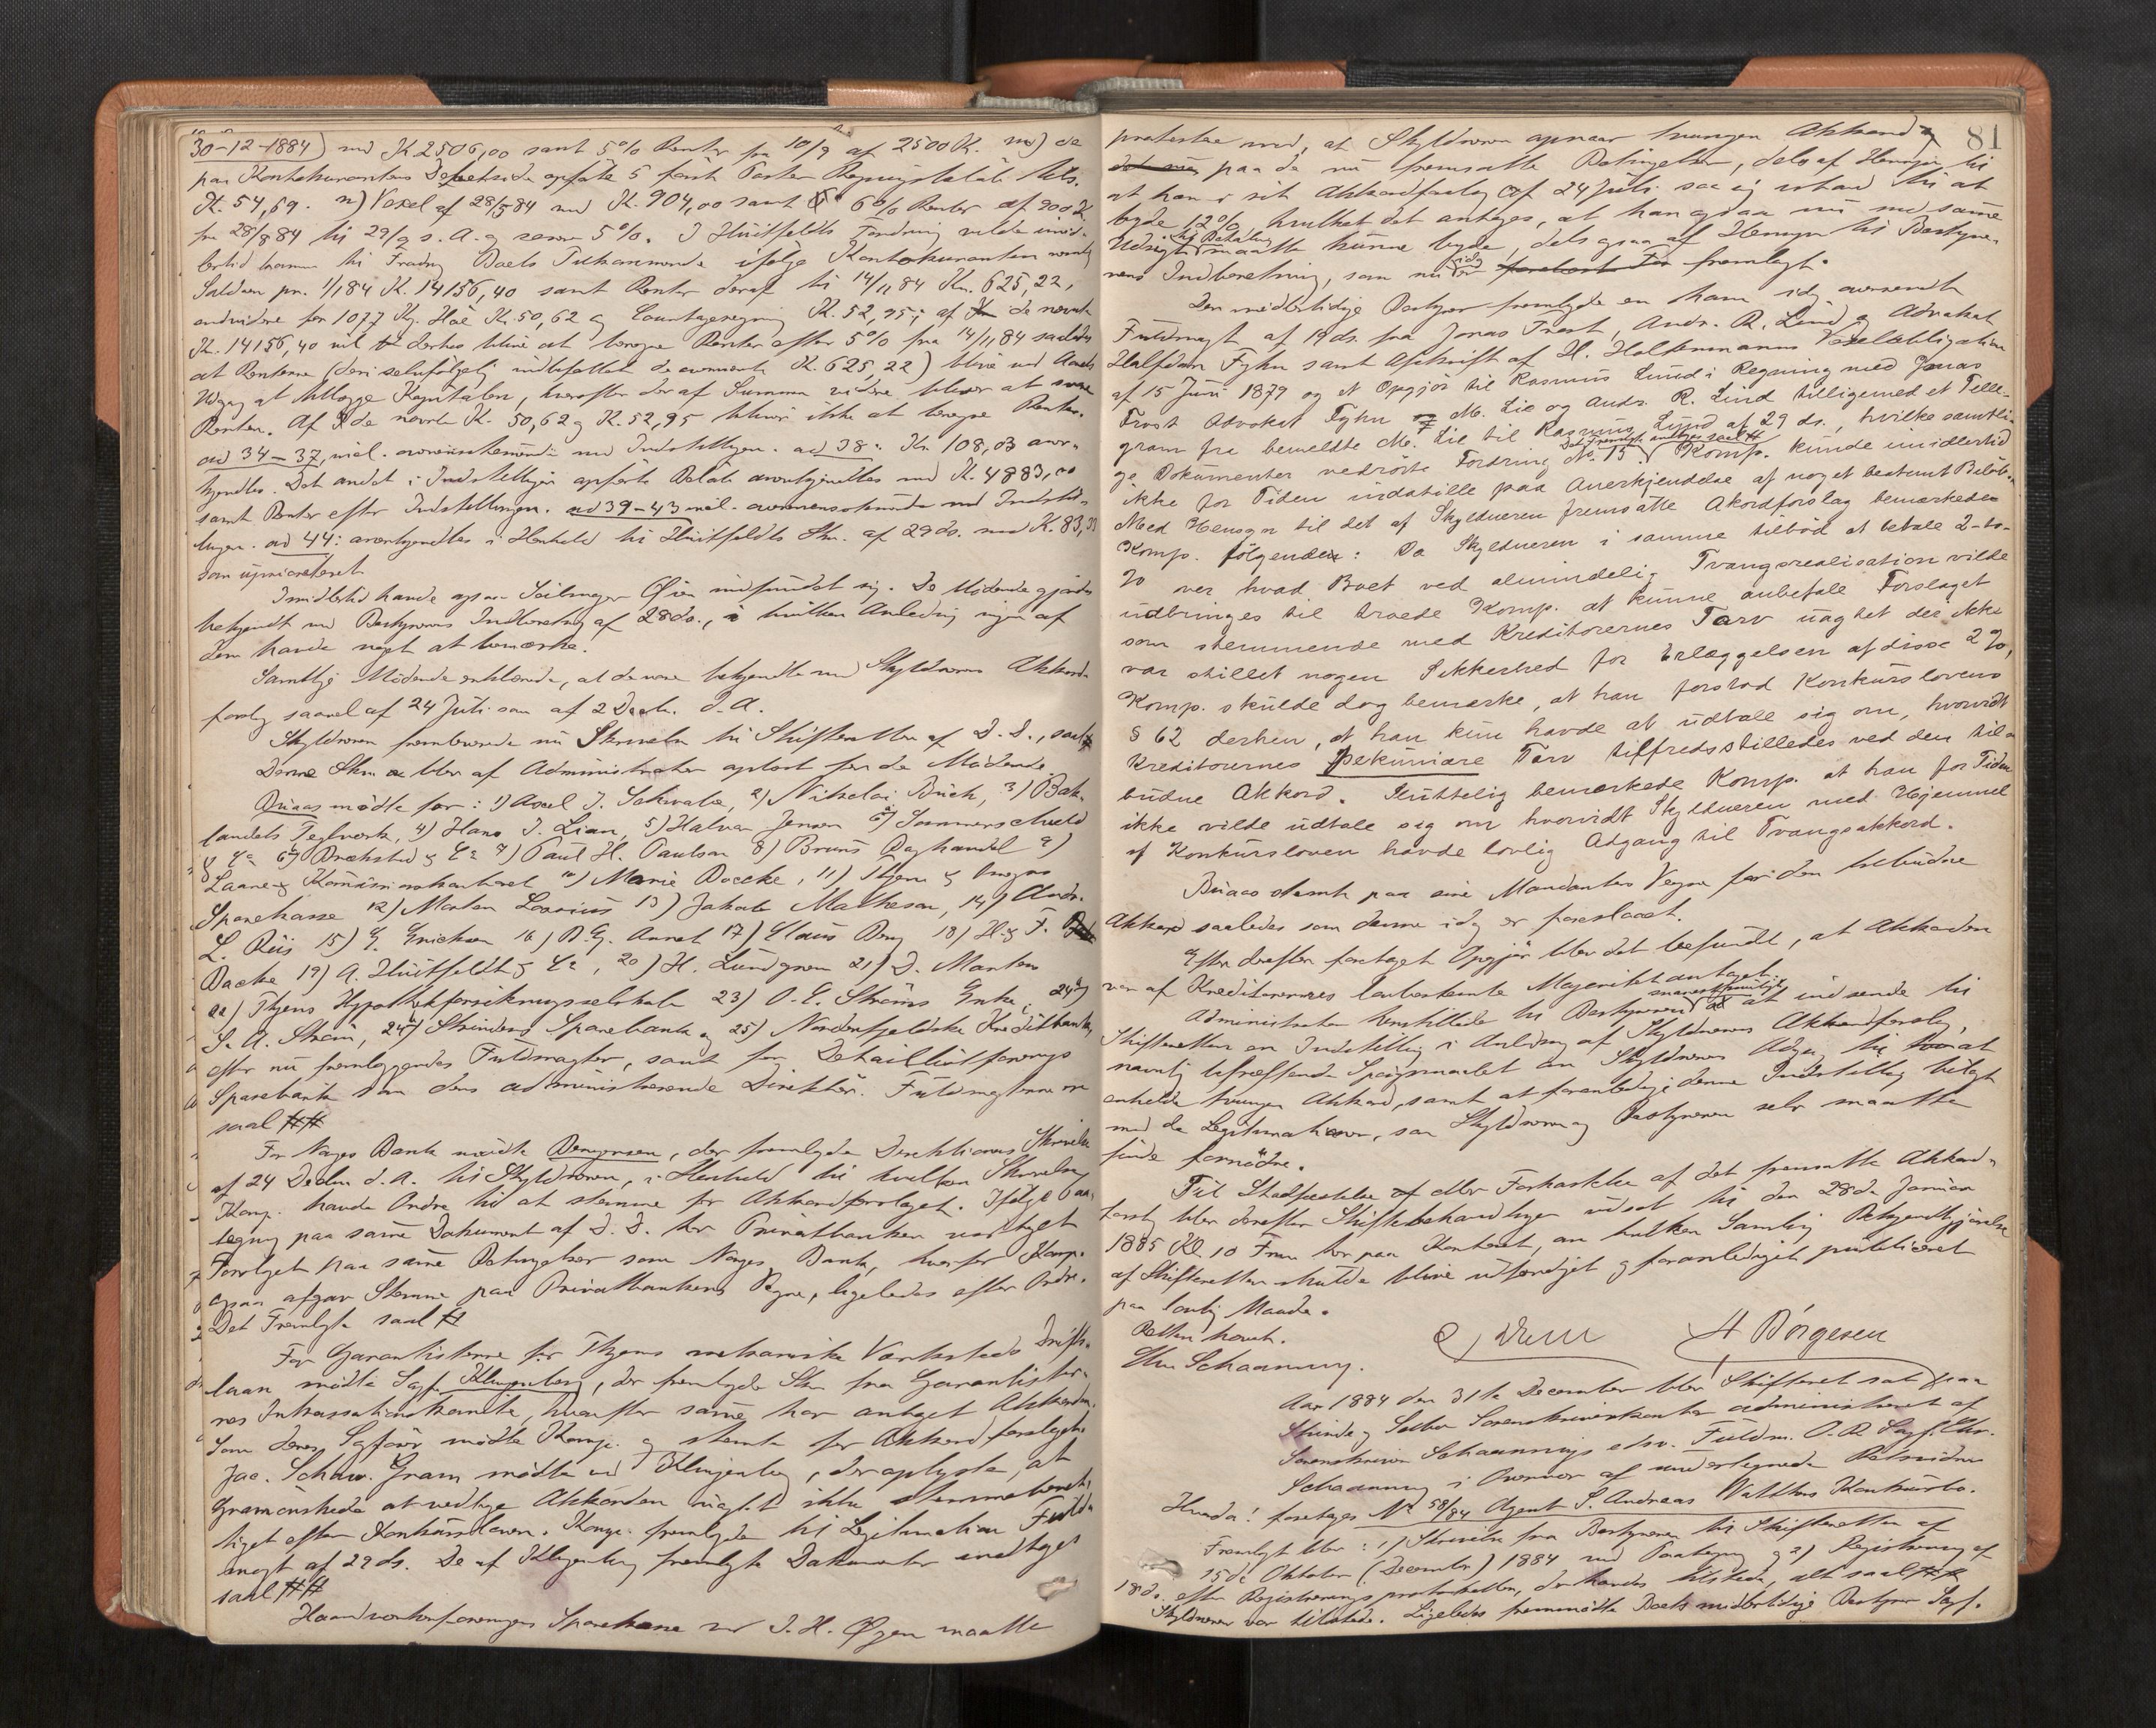 30-12-1884) med K. 2506,00 samt 5% Renter fra 10/9 af 2500 K. m) de
paa Kontokurantens Debetside opførte 5 første Poster Regningsbeløb tils.
K. 54,69. n) Vexel af 28/5 84 med K. 904,00 samt 6% Renter af 900 K.
fra 28/8 84 til 29/9 s. A. og senere 5%. I Huitfeldts Fordring vilde imid-
lertid komme til Fradrag Boets Tilkommende ifølge Kontokuranten nemlig
Saldoen pr. 1/1 84 K. 14156,40 samt Renter deraf til 14/11 84 Kr. 625,22,
endvidere for 1077 Kg. Hø K. 50,62 og Courtageregning K. 52,95; af de nævnte
K. 14156,40 vil derhos blive at beregne Renter efter 5% fra 14/11 84 saaledes
at Renterne (deri selvfølgelig indbefattet de ommeldte K. 625,22) blive ved Aarets
Udgang at tillægge Kapitalen, hvorefter der af Summen videre bliver at svare
Renter. Af de nævnte K. 50,62 og K. 52,95 bliver ikke at beregne Renter.
ad 34-37, incl. overensstemmende med Indstillingen. ad 38: Kr. 108,03 aner-
kjendtes. Det andet i Indstillingen opførte Beløb anerkjendtes med K. 4883,00
samt Renter efter Indstillingen. ad 39-43 incl. overensstemmende med Indstil-
lingen. ad 44: anerkjendtes i Henhold til Huitfeldts Skr. af 29 ds. med K. 83,33
som uprioriteret
Imidlertid havde ogsaa Seilmager Øien indfundet sig. De Mødende gjordes
bekjendt med Bestyrerens Indberetning af 28 ds., i hvilken Anledning ingen af
dem havde noget at bemærke.
Samtlige Mødende erklærede, at de vare bekjendte med Skyldnerens Akkord-
forslag saavel af 24 Juli som af 2 Decbr. d. A.
Skyldneren fremleverede nu Skrivelse til Skifteretten af D. D., saal #
Denne Skr. blev af Administrator oplæst for de Mødende.
Buaas mødte for: 1) Axel J. Schwabe, 2) Nikolai Buch, 3) Bak-
landets Teglverk, 4) Hans J. Lian, 5) Halvor Jensen 6a) Sommerschield
& Co 6b) Brækstad & Co 7) Paul H. Paulsen 8) Bruns Boghandel 9)
Laane & Kommissionskontoret 10) Marie Boecke, 11) Thjems & Omegns
Sparekasse 12) Morten Lossius 13) Jakob Matheson, 14) Andr.
L. Riis 15) G. Erichsen 16) B. G. Aunet 17) Claus Berg 18) H. & F.
Backe 19) A. Huitfeldt & Co, 20) H. Lundgren 21) D. Morten
22) Thjems Hypothekforsikringsselskab 23) O. E. Strøms Enke, 24)
S. A. Strøm, 24b) Strindens Sparebank og 25) Nordenfjeldske Kreditbank,
efter nu fremlæggendes Fuldmagter, samt for Detaillistforenings
Sparebank som dens administrerende Direktør. Fuldmagterne
saal ##
For Norges Bank mødte Bernhoft, der fremlagde Direktionens Skrivelse
af 24 Decbr d. A. til Skyldneren, i Henhold til hvilken Skrivelse
Komp. havde Ordre til at stemme for Akkordforslaget. Ifølge Paa-
tegning paa samme Dokument af D. D. har Privatbanken vedtaget
Forslaget paa samme Betingelser som Norges Bank, hvorfor Komp.
ogsaa afgav Stemme paa Privatbankens Vegne, ligeledes efter Ordre.
Det Fremlagte saal #
For Garantisterne for Thjems mekaniske Værksteds Drifts-
laan mødte Sagf. Klingenberg, der fremlagde Skr. fra Garantister-
nes Inkassationskomite, hvorefter samme har antaget Akkorden.
Som deres Sagfører mødte Komp. og stemte for Akkordforslaget.
Jac. Schaw. Gram mødte ved Klingenberg, der oplyste, at
Gram ønskede at vedtage Akkorden uagtet ikke stemmeberet-
tiget efter Konkursloven. Komp. fremlagde til Legitimation Fuld-
magt af 29 ds. De af Klingenberg fremlagte Dokumenter modtaget
saal ##
Haandverkerforeningens Sparekasse ved J. H. Øyen maatte
81
protestere mod, at Skyldneren opnaar tvungen Akkord
paa de nu fremsatte Betingelser, dels af Hensyn til
at han i sit Akkordforslag af 24 Juli saa sig istand til at
byde 12% hvilket det antages, at han ogsaa nu med samme
Udsigt til Betaling maatte kunne byde, dels ogsaa af Hensyn til Bestyre-
rens Indberetning, som nu idag er fremlagt.
Den midlertidige Bestyrer fremlagde en ham idag oversendt
Fuldmagt af 19 ds. fra Jonas Trost, Andr. R. Lund og Advokat
Halfdan Fyhn samt Afskrift af H. Holtermanns Vexelobligation
af 15 Juni 1879 og et Opgjør til Rasmus Lund i Regning med Jonas
Trost Advokat Fyhn M. Lie og Andr. R. Lund tilligemed et Tele-
gram fra bemeldte M. Lie til Rasmus Lund af 29 ds., hvilke samtli-
ge Dokumenter vedrørte Fordring No. 15. Det Fremlagte modtoges saal # Komp. kunde imidlertid
ikke for Tiden indstille paa Anerkjendelse af noget bestemt Beløb.
Med Hensyn til det af Skyldneren fremsatte Akordforslag bemærkede
Komp. følgende: Da Skyldneren i samme tilbød at betale 2-to-
% over hvad Boet ved almindelig Tvangsrealisation vilde
udbringes til troede Komp. at kunne anbefale Forslaget
som stemmende med Kreditorernes Tarv uagtet der ikke
var stillet nogen Sikkerhed for Erlæggelsen af disse 2%,
Komp. skulde dog bemærke, at han forstod Konkurslovens
§ 62 derhen, at han kun havde at udtale sig om, hvorvidt
Kreditorernes pekuniære Tarv tilfredsstilledes ved den til-
budne Akkord. Sluttelig bemærkede Komp. at han for Tiden
ikke vilde udtale sig om hvorvidt Skyldneren med Hjemmel
af Konkursloven havde lovlig Adgang til Tvangsakkord.
Buaas stemte paa sine Mandanters Vegne for den tilbudne
Akkord saaledes som denne idag er foreslaaet.
Efter derefter foretaget Opgjør blev det befundet, at Akkorden
var af Kreditorernes lovbestemte Majoritet antaget.
Administrator henstillede til Bestyreren snarest muligt at indsende til
Skifteretten en Indstilling i Anledning af Skyldnerens Akkordforslag,
navnlig betræffende Spørgsmaalet om Skyldnerens Adgang til at
erholde tvungen Akkord, samt at foranledige denne Indstilling bilagt
med de Legitimationer, som Skyldneren og Bestyreren selv maatte
finde fornødne.
Til Stadfæstelse eller Forkastelse af det fremsatte Akkord-
forslag blev derefter Skiftebehandlingen udsat til den 28de Januar
1885 Kl. 10 Fm. her paa Kontoret, om hvilken Samling Bekjendtgjørelse
af Skifteretten skulde blive udfærdiget og foranlediget publiceret
paa lovlig Maade.
Retten hævet.
Chr Schaanning.
H Børgesen
Aar 1884 den 31te December blev Skifteret sat paa
Strinde og Selbu Sorenskriverkontor administreret af
Sorenskriver Schaannings edsv. Fuldm. O. R. Sagf. Chr.
Schaanning i Overvær af undertegnede Retsvidner
Hvorda: foretoges No 58/84 Agent S. Andreas Valktors Konkursbo.
Fremlagt blev: 1) Skrivelse fra Bestyreren til Skifteretten af
15de Oktober (December) 1884 med Paategning og 2) Registrering af
18 ds. efter Registreringsprotokollen, der havdes tilstede, alt saal ##
Skyldneren var tilstede. Ligeledes fremmødte Boets midlertidige Bestyrer Sagf.